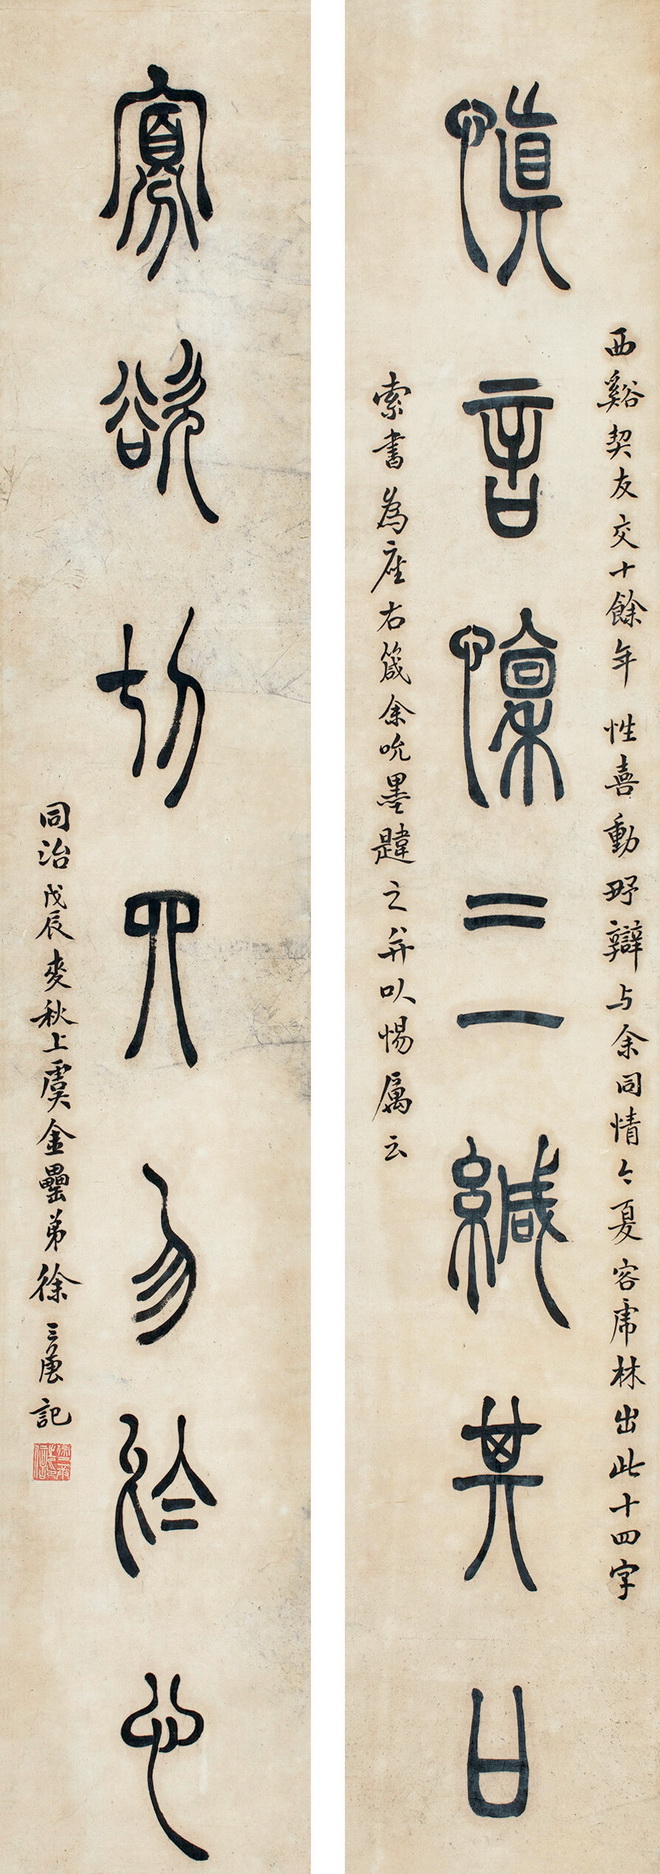 西谿契友交十餘年性喜動好辯与余同情今夏客虎林出此十四字
慎言懍三緘其口
索書為座右箴余吮墨韙之并以惕厲云
寡欲切四勿於心
同治戊辰麥秋上虞金罍弟徐三庚記